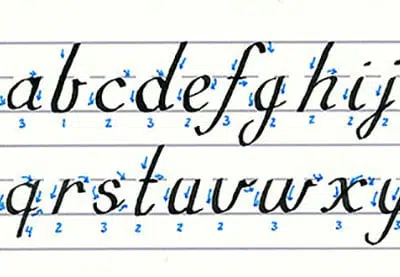 a b c d e f g h i j
3 1 2 3 2 3 2 2 2 2
q r s t u v w x y
4 2 3 2 2 2 3 3 3